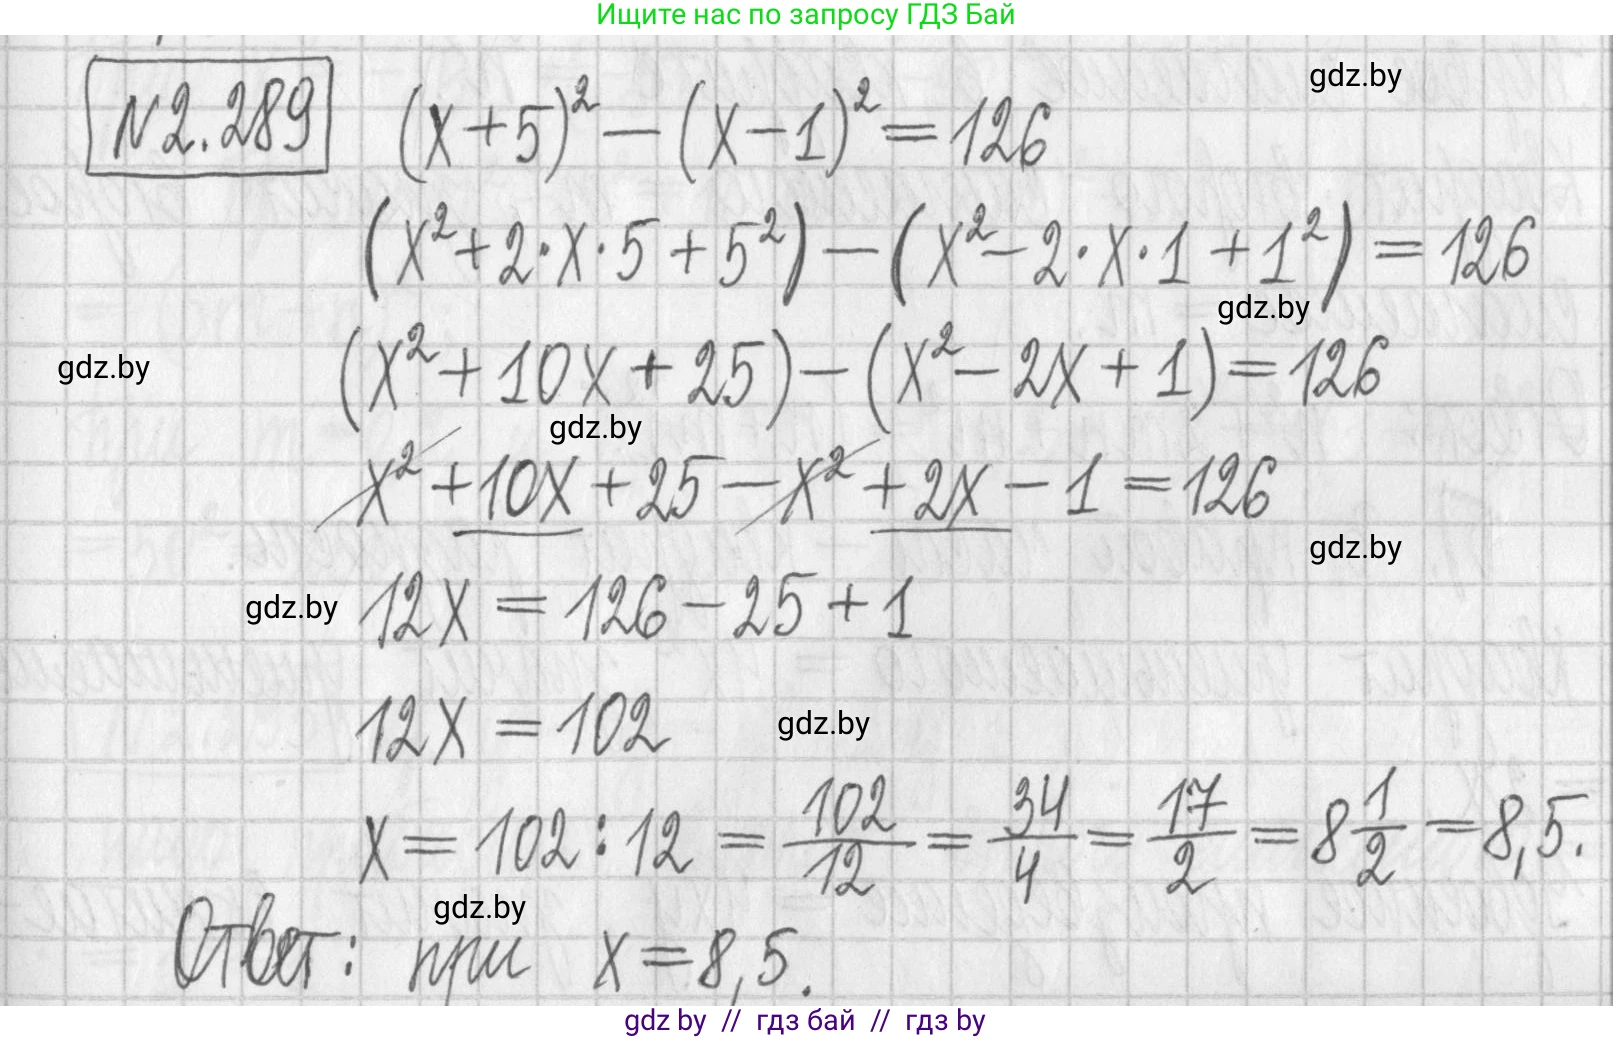 Ищите нас по запросу ГДЗ Бай
N2.289 (x+5)² — (x-1)² = 126
gdz.by
(x² + 2·x·5 + 5²) — (x² - 2·x·1 + 1²) = 126
gdz.by
gdz.by
(x² + 10x + 25) - (x² - 2x + 1) = 126
gdz.by
x² + 10x + 25 - x² + 2x - 1 = 126
gdz.by
gdz.by
12x = 126 - 25 + 1
12x = 102
gdz.by
x = 102 : 12 = 102/12 = 34/4 = 17/2 = 8 1/2 = 8,5.
gdz.by
Ответ: при x = 8,5.
gdz by // гдз бай // гдз by